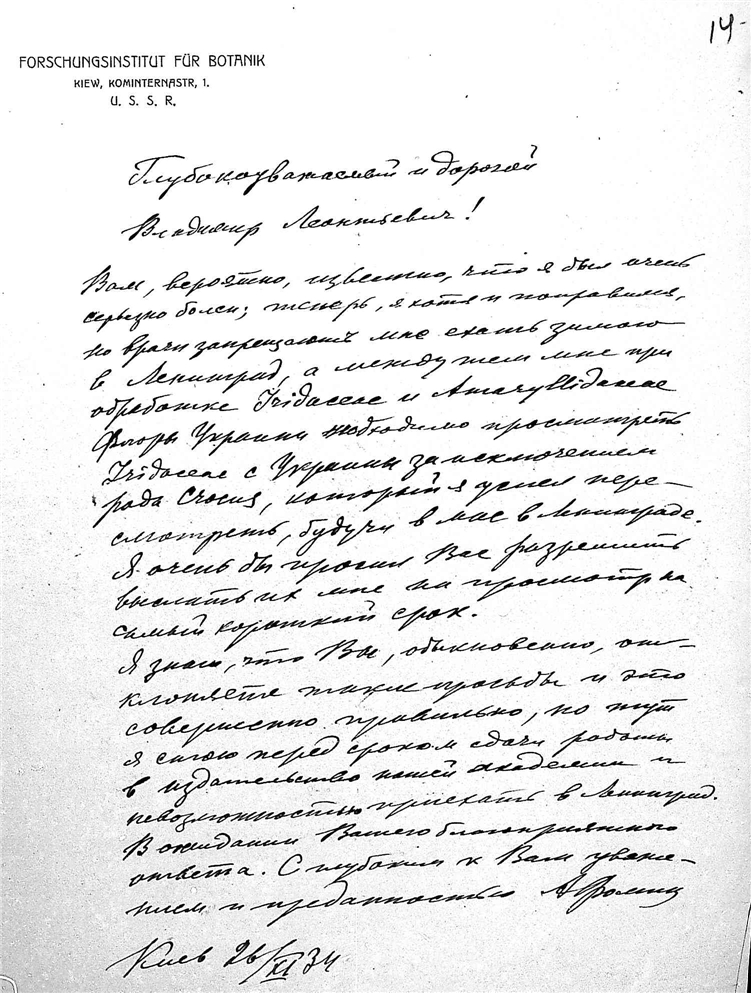 14-
FORSCHUNGSINSTITUT FÜR BOTANIK
KIEW, KOMINTERNASTR, 1.
U. S. S. R.
Глубокоуважаемый и дорогой
Владимир Леонтьевич!
Вам, вероятно, известно, что я был очень
серьезно болен; теперь, я хотя и поправился,
но врачи запрещают мне ехать зимою
в Ленинград, а между тем мне при
обработке Iridaceae и Amaryllidaceae
Флоры Украины необходимо просмотреть
Iridaceae с Украины за исключением
рода Crocus, который я успел пере-
смотреть, будучи в мае в Ленинграде.
Я очень бы просил Вас разрешить
выслать их мне на просмотр на
самый короткий срок.
Я знаю, что Вы, обыкновенно, от-
клоняете такие просьбы и это
совершенно правильно, но тут
я стою перед сроком сдачи работы
в издательство нашей академии и
невозможностью приехать в Ленинград.
В ожидании Вашего благоприятного
ответа. С глубоким к Вам уваже-
нием и преданностью АФомин
Киев 26/XI 34